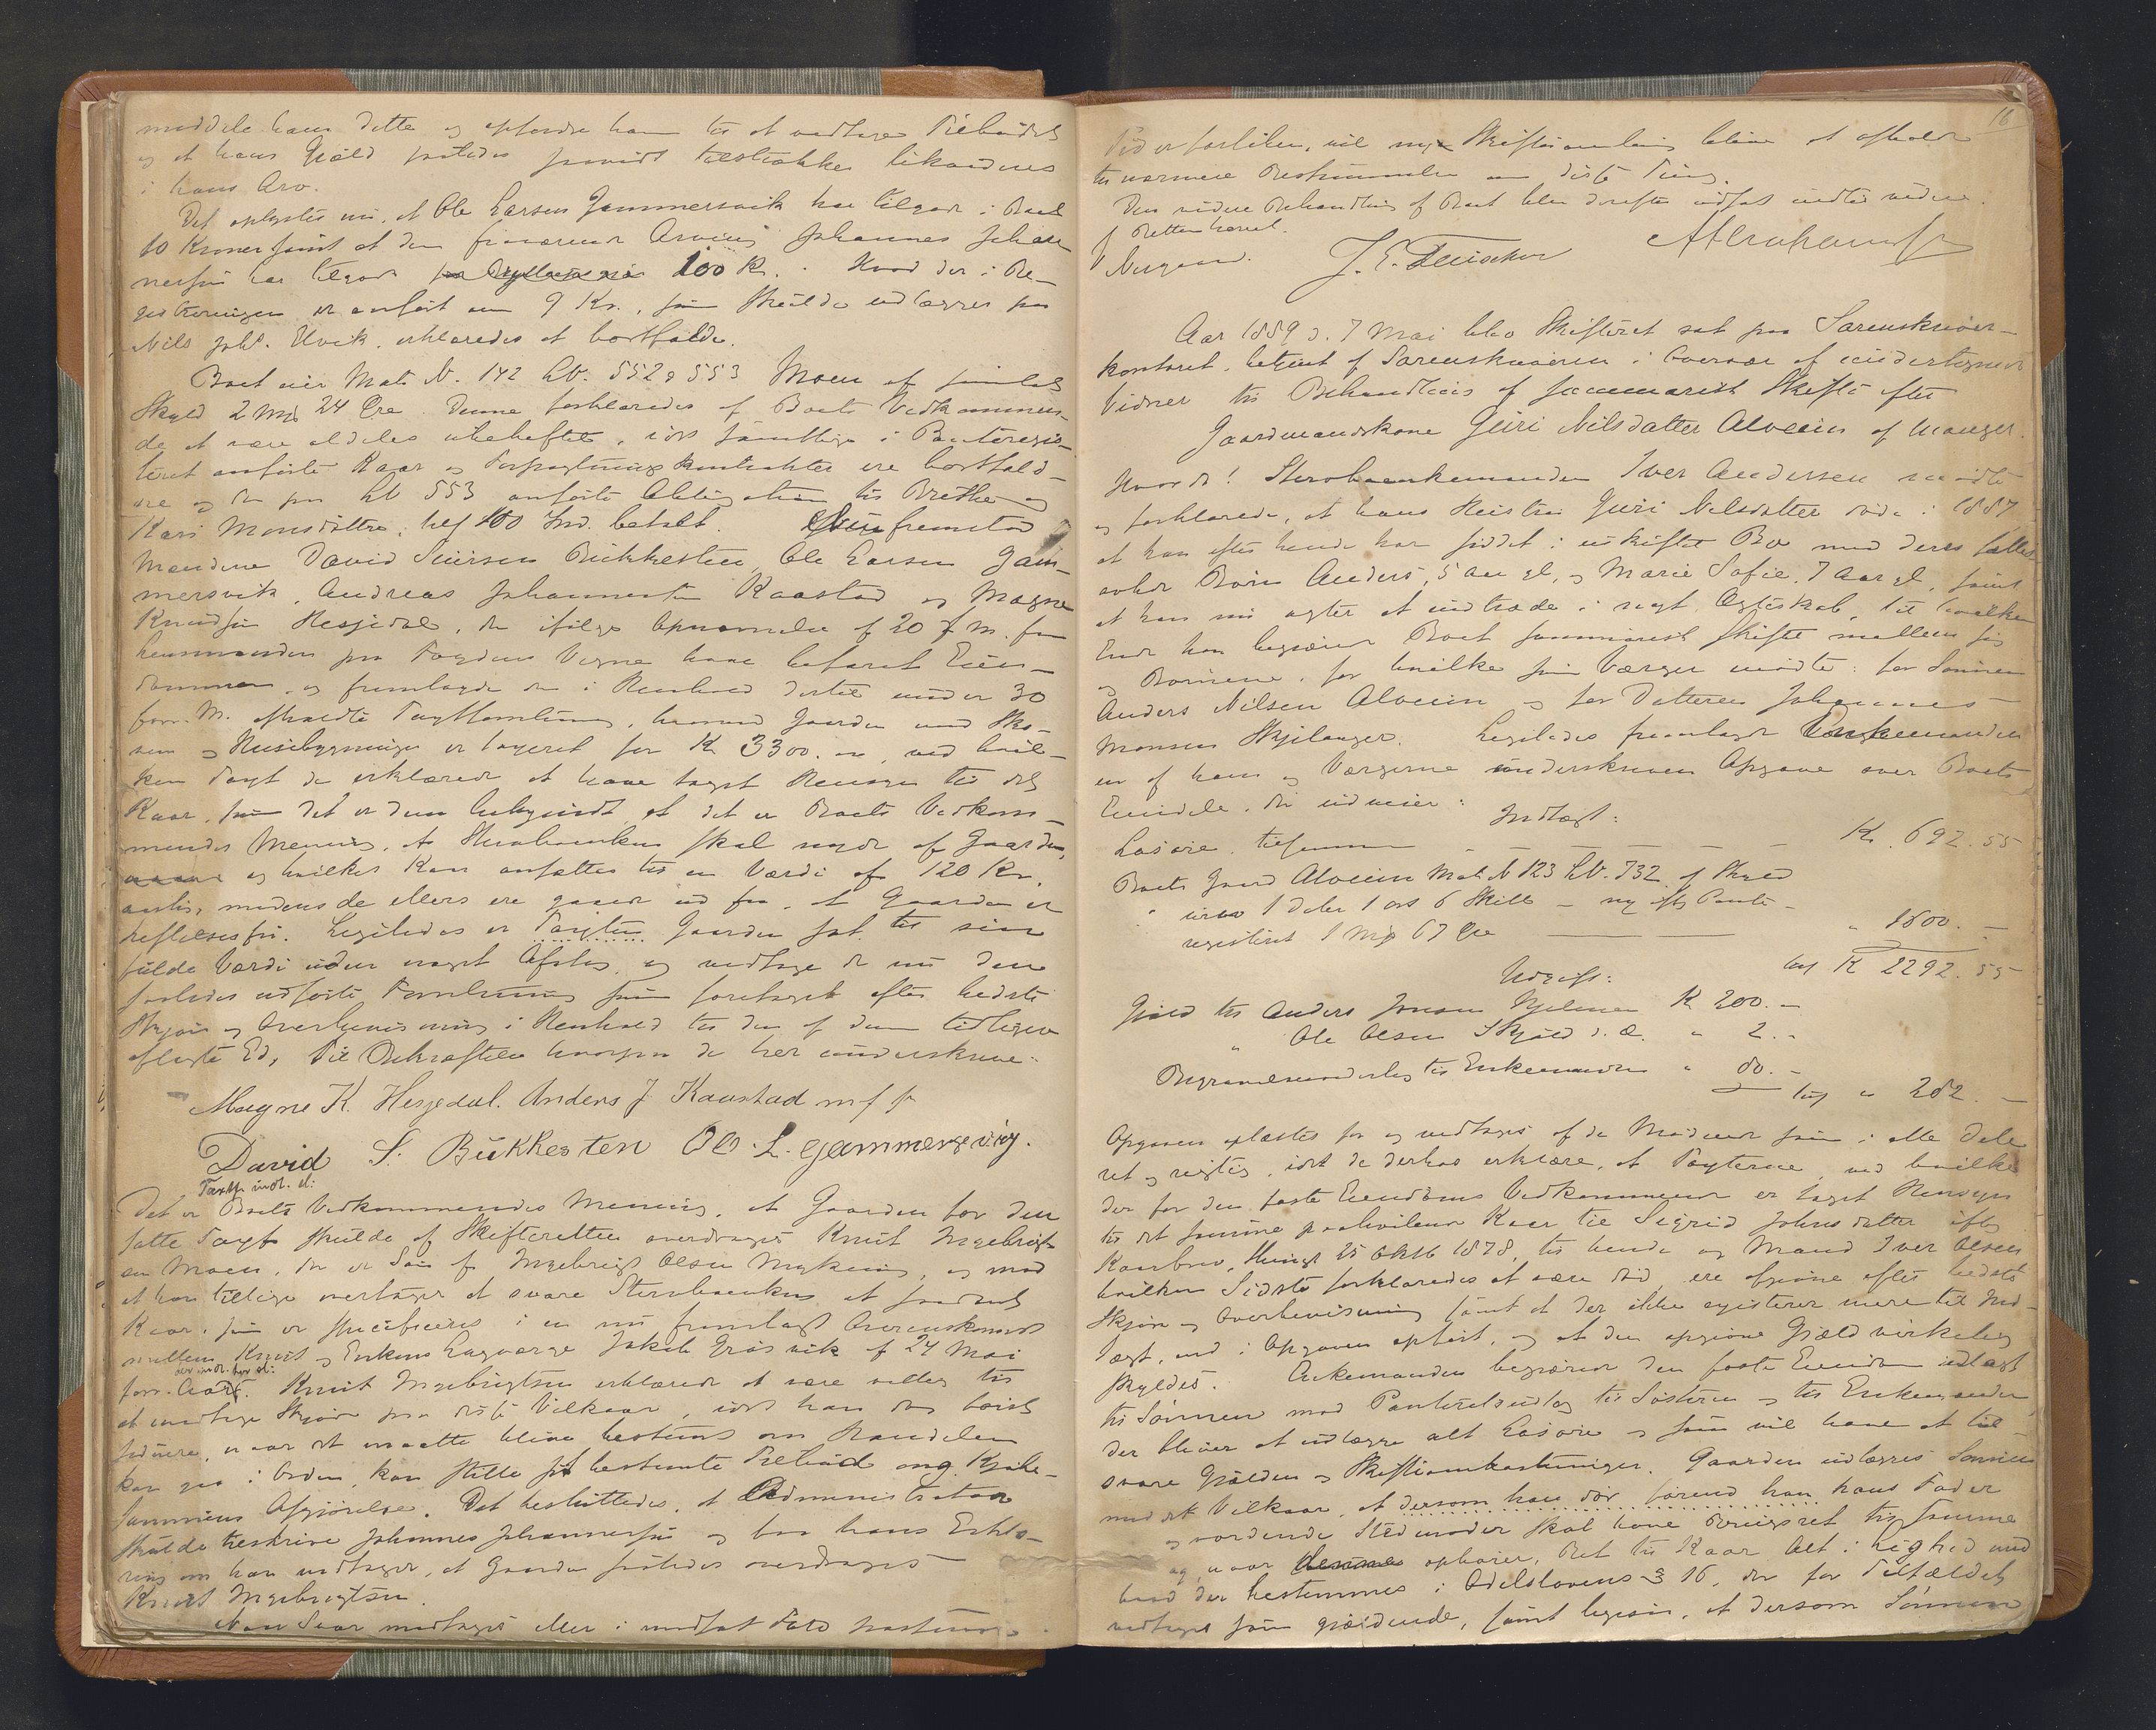 meddele ham dette og opfordre ham til at vedtage Tilbudet
og at hans Gjæld saaledes forvidt tilstrækker likvideres
i hans Arv.
Det oplystes nu, at Ole Larsen Gammersvik har tilgode i Boet
10 Kroner samt at den fraværende Arving Johannes Johan-
nessen har tilgode 100 Kr. Hvad der i Re-
gistreringen er anført om 9 Kr., som skulde udlægges paa
Nils Johs. Urvik, erklæredes at bortfalde.
Boet eier Mat. N. 142 Lb. 552 & 553 Moen af samlet
Skyld 2 Mrk 24 Øre. Denne forklaredes af Boets Vedkommen-
de at være aldeles ubeheftet, idet samtlige i Panteregis-
teret anførte Kaar og Forpagtningskontrakter ere bortfald-
ne og den paa Lb 553 anførte Obligation til Brethe og
Kari Monsdøttre, 100 betalt. fremstod
Mændene David Bukkesten, Ole Larsen Gam-
mersvik, Andreas Johannessen Kaastad og Magne
Knudsen Hesjedal, der ifølge Opnævnelse af 20 f. M. fra
Lensmanden paa Fogdens Vegne have befaret Eien-
dommen, og fremlagde en i Henhold dertil under 30
forr. M. afholdt Taxtforretning, hvorved Gaarden med Sko-
ven og Husebygninger er taxeret for Kr 3300.00, ved hvil-
ken Taxt de erklærede at have taget Hensyn til det
Kaar, som det er dem bekjendt, at det er Boets Vedkom-
mendes Mening, at Sterbo enken skal nyde af Gaarden,
og hvilket Kaar ansættes til en Værdi af 120 Kr.
aarlig, medens de ellers ere gaaede ud fra, at Gaarden er
heftelsesfri. Ligeledes er Taxten Gaarden sat til sin
fulde Værdi uden noget Afslag, og vedtage de nu den
saaledes udførte Forretning som foretaget efter bedste
Skjøn og Overbevisning i Henhold til den af dem tidligere
aflagte Ed, til Bekræftelse hvorpaa de her underskrive:
Magne K. Hesjedal. Anders J Kaastad m f p
David S. Bukkesten Ole L. gammersvig.
Taxtf. indt. d:
Det er Boets Vedkommendes Mening, at Gaarden for den
satte Taxt skulde af Skifteretten overdrages Knut Ingebrigt-
sen Moen, der er Søn af Ingebrigt Olsen, og mod
at han tillige overtager at svare Sterboenken et saadant
Kaar, som er specificeret i en nu fremlagt Overenskomst
mellem Knut og Enkens Lagværge Jakob Grøsvik af 24 Mai
forr. Aar. Knut Ingebrigtsen erklærede at være villig til
at modtage Skjøde paa disse Vilkaar, idet han dog først
senere, naar det maatte blive bestemt om Handelen
kan gaa i Orden, kan stille sit bestemte Tilbud ang. Kjøbe-
summens Afgjørelse. Det besluttedes, at Administrator
skulde tilskrive Johannes Johannessen og faa hans Erklæ-
ring om han vedtager, at Gaarden saaledes overdrages
Knut Ingebrigtsen.
Naar Svar modtages eller i modsat Fald
16
Tid er forløben, vil nye Skiftesamling blive at afholde
til nærmere Bestemmelse om disse Ting.
Den videre Behandling af Boet blev derefter udsat indtil videre.
Retten hævet.
Nergaard. J. E. Fleischer
Aar 1889 d. 7 Mai blev Skifteret sat paa Sorenskriver-
kontoret, betjent af Sorenskriveren i Overvær af undertegnede
Vidner til Behandling af summarisk Skifte efter
Gaardmandskone Guri Nilsdatter Alveim af Manger.
Hvorda! Sterboenkemanden Iver Andersen mødte
og forklarede, at hans Hustru Guri Nilsdatter døde i 1887,
at han efter hende har siddet i uskiftet Bo med deres fælles
avlede Børn Anders, 5 aar gl., og Marie Sofie, 7 Aar gl., samt
at han nu agter at indtræde i nyt Ægteskab, til hvilken
Ende han begjærer Boet summarisk skiftet mellem sig
og Børnene, for hvilke som Værger mødte: for Sønnen
Anders Nilsen Alveim og for Datteren Johannes
Monsen Skjelanger. Ligeledes fremlagde Enkemanden
en af ham og Værgerne underskreven Opgave over Boets
Eiendele, der udviser:
Indtægt:
Løsøre tilsammen — Kr. 692.55
Boets Gaard Alveim Mat. N 123 Lb. 732 af Skyld
1 Daler 1 ort 6 Skill — ny efter Pante-
registeret 1 Mrk 67 Øre — " 1600.—
tils Kr 2292.55
Udgift:
Gjæld til Anders Jonsen Kr 200.—
" Ole Olsen Skjold " 2.—
Begravelsesudlæg til Enkemanden " 80.—
tils " 282.—
Opgaven oplæstes for og vedtages af de Mødende som i alle Dele
ret og rigtig, idet de derhos erklære, at Taxterne, ved hvilke
der for den faste Eiendoms Vedkommende er taget Hensyn
til det samme paahvilende Kaar til Sigrid Johnsdatter efter
Kaarbrev, thinglyst 25 Oktb 1878, til hende og Mand Iver Olsen
hvilken Sidste forklaredes at være død, ere afgivne efter bedste
Skjøn og Overbevisning samt at der ikke existerer mere til Ind-
tægt, end i Opgaven opført, og at den opgivne Gjæld virkelig
skyldes. Enkemanden begjærede den faste Eiendom udlagt
til Sønnen mod Panteudlæg til Søsteren og til Enkemanden
der bliver at udlægge alt Løsøre og som vil have at til-
svare Gjælden og Skifteomkostninger. Gaarden udlægges Sønnen
med det Vilkaar, at dersom han dør, førend han hans Fader
og vordende Stedmoder skal have Brugsret til samme
og, naar denne ophører, Ret til Kaar Alt i Lighed med
hvad der bestemmes i Odelslovens § 16, der for Tilfældet
vedtages som gjældende, samt ligesaa, at dersom Sønnen